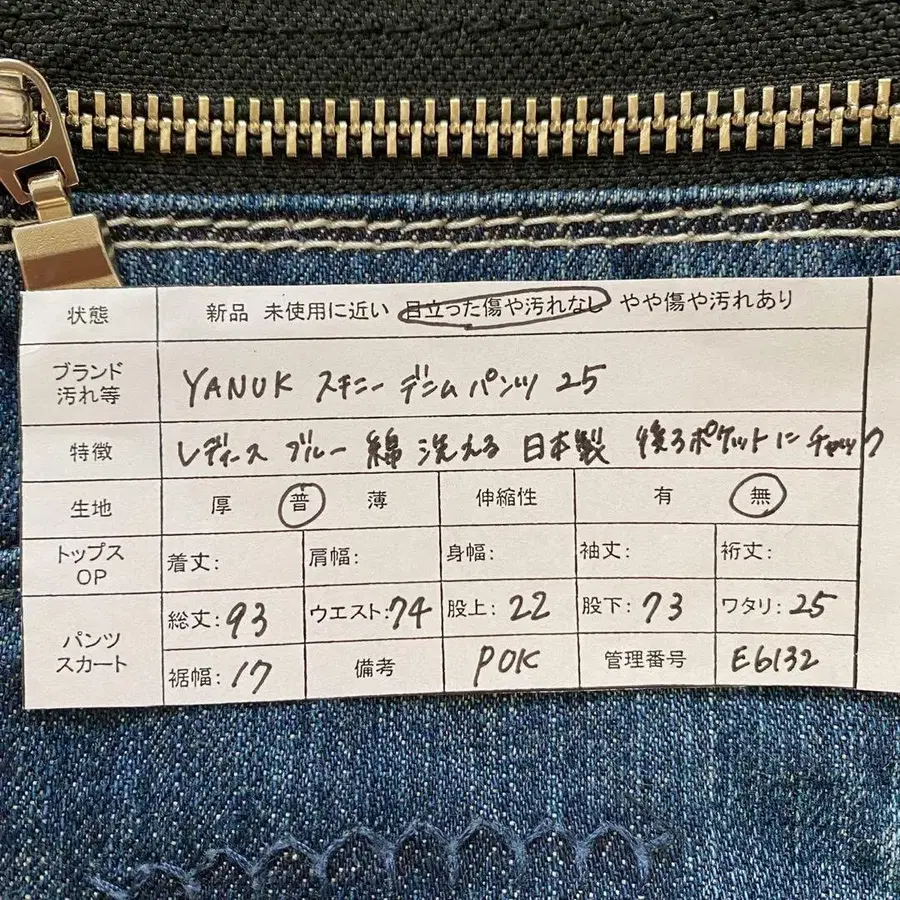 状態 新品 未使用に近い 目立った傷や汚れなし やや傷や汚れあり
ブランド 汚れ等 YANUK スキニー デニム パンツ 25
特徴 レディース ブルー 綿 洗える 日本製 後ろポケットにチャック
生地 厚 普 薄 伸縮性 有 無
トップス OP 着丈: 肩幅: 身幅: 袖丈: 裄丈:
パンツ スカート 総丈:93 ウエスト:74 股上:22 股下:73 ワタリ:25
裾幅:17 備考 POK 管理番号 E6132